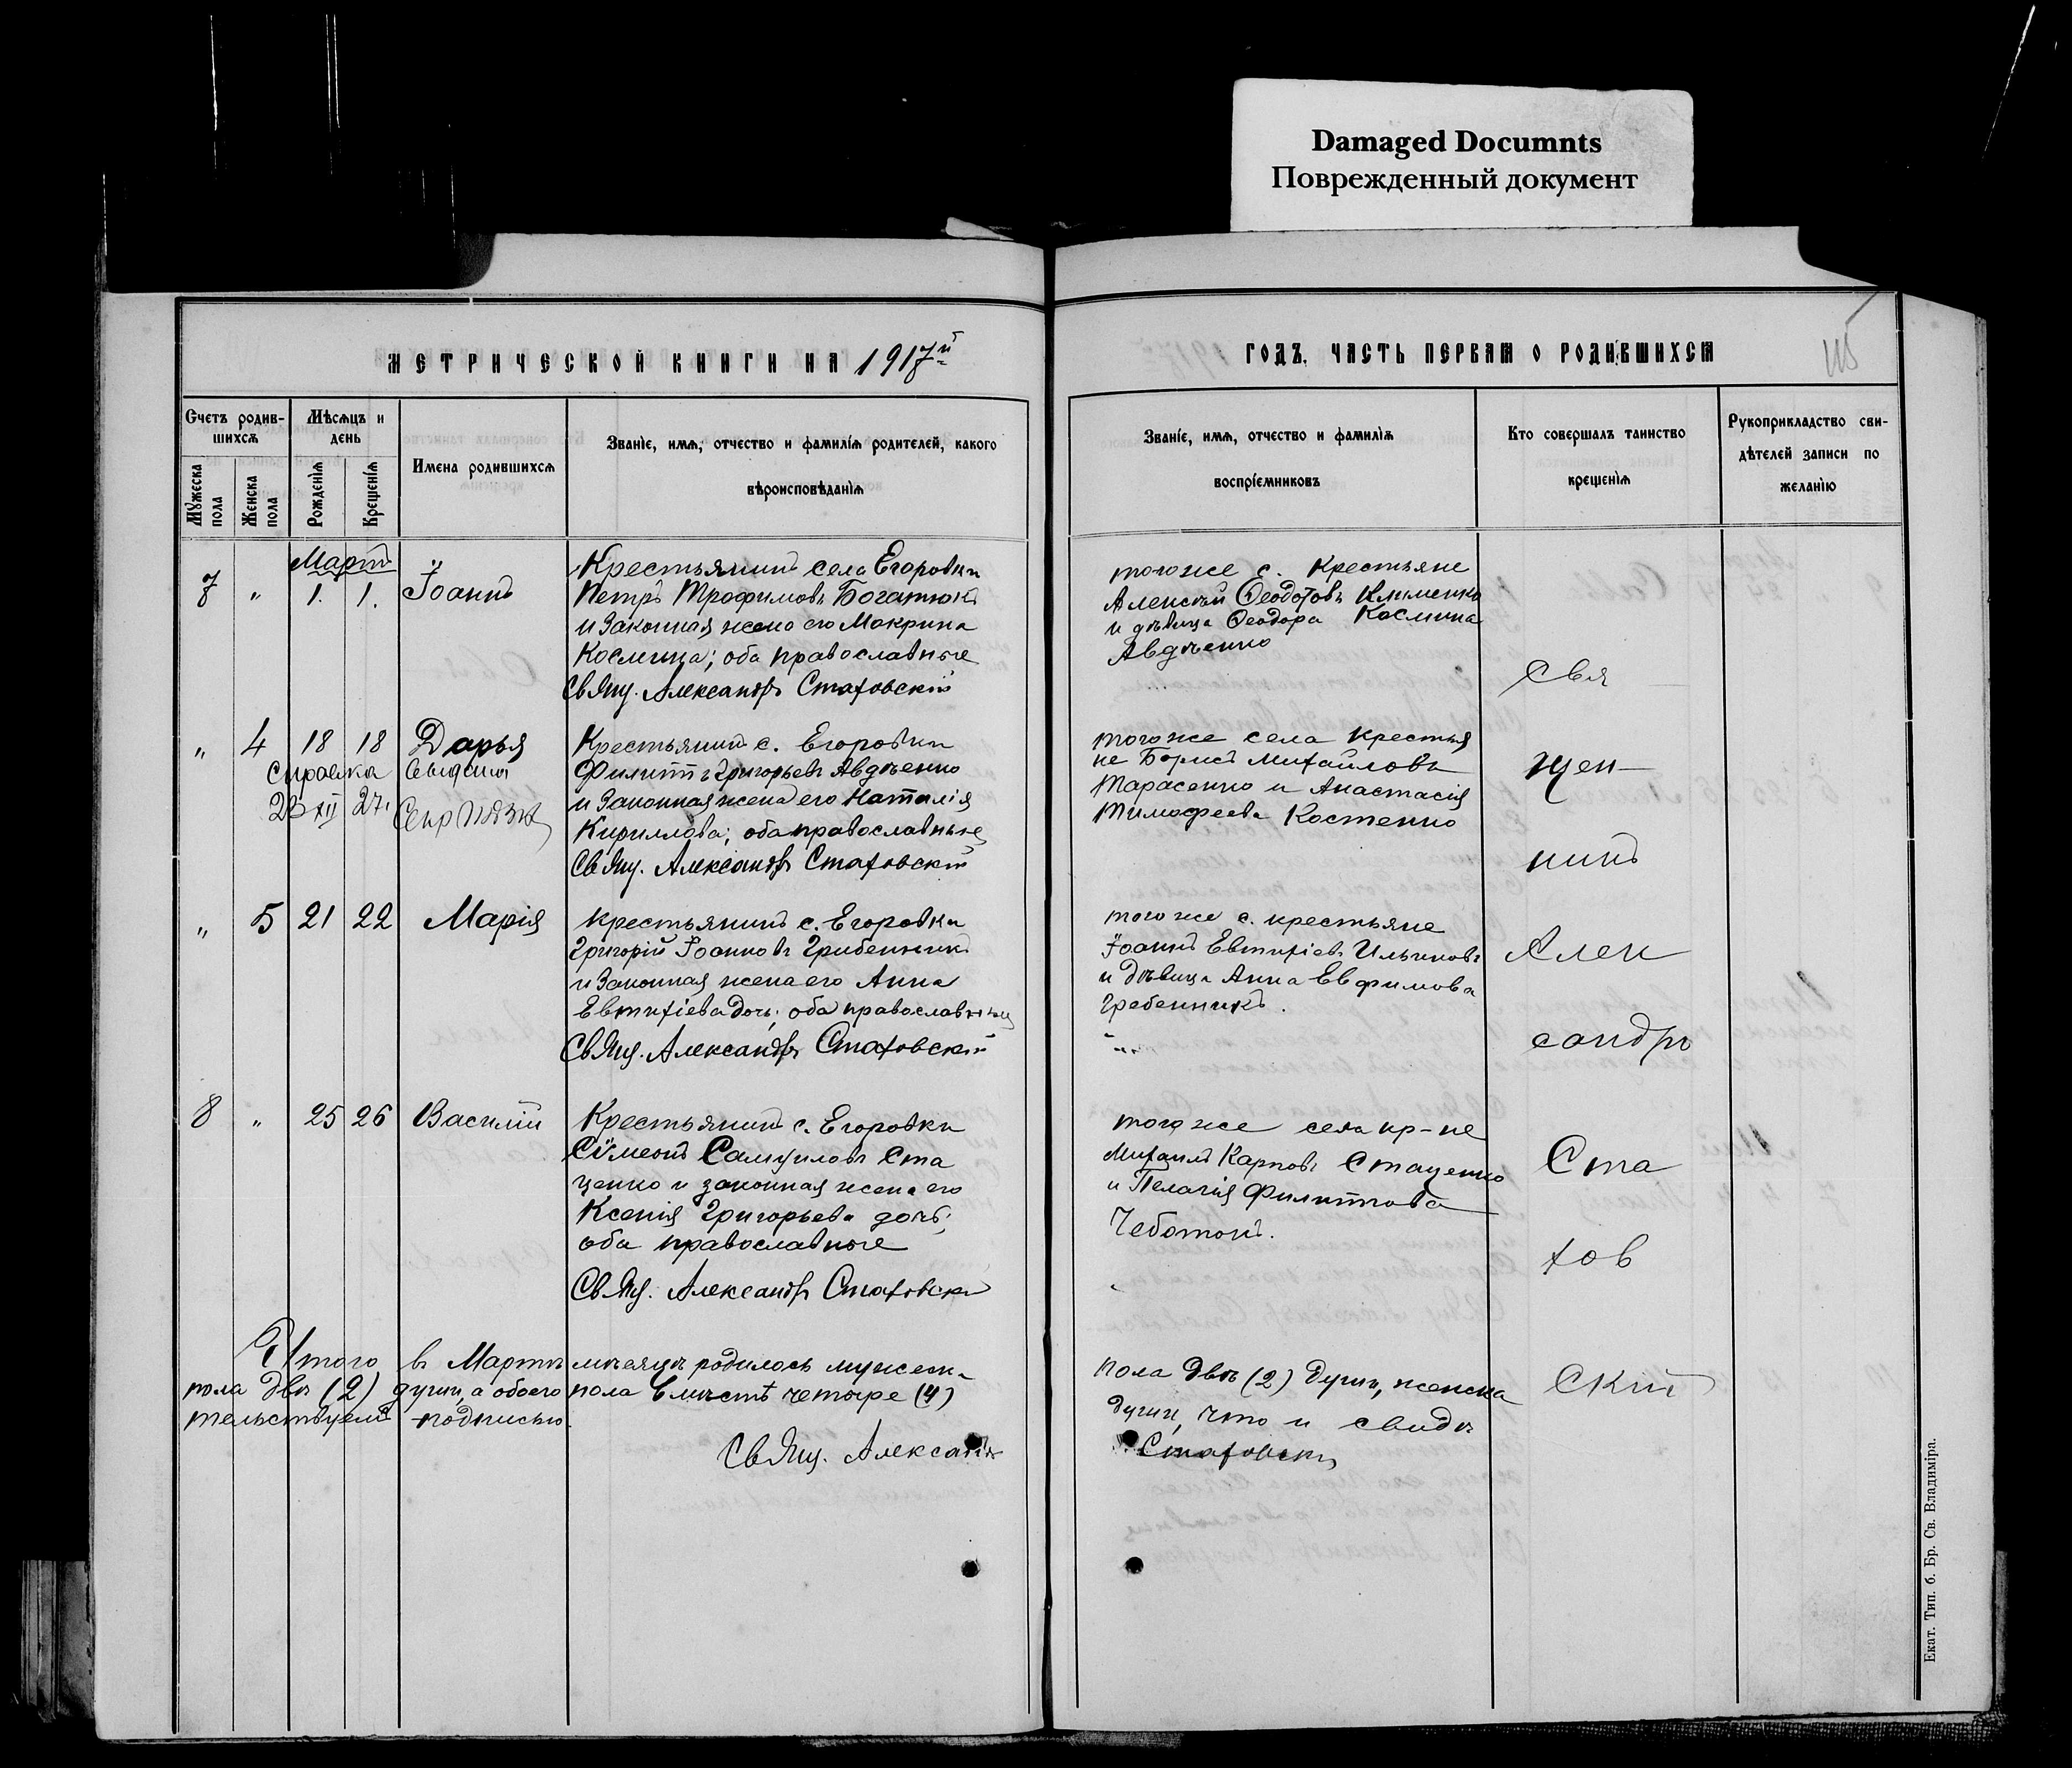 Damaged Documnts
Поврежденный документ
МЕТРИЧЕСКОЙ КНИГИ НА 1917й
Счетъ родив-
шихсѧ
Мужеска пола
Женска пола
Мѣсѧцъ и
день
Рожденїѧ
Крещенїѧ
Имена родившихсѧ
Званїе, имѧ, отчество и фамилїѧ родителей, какого
вѣроисповѣданїѧ
Мартъ
7 " 1. 1. Іоаннъ
Крестьянинъ села Егоровки
Петръ Трофимовъ Богатюкъ
и законная жена его Макрина
Космина; оба православные
Свящ. Александръ Стаховскій
" 4 18 18 Дарья
справка
23 XII 27.
Крестьянинъ с. Егоровки
Филиппъ Григорьевъ Авдѣенко
и законная жена его Наталія
Кириллова; оба православные
Свящ. Александръ Стаховскій
" 5 21 22 Марія
крестьянинъ с. Егоровки
Григорій Іоанновъ Гребенникъ
и законная жена его Анна
Евтихіева дочь; оба православные
Свящ. Александръ Стаховскій
8 " 25 26 Василій
Крестьянинъ с. Егоровки
Сѵмеонъ Самуиловъ Ста
ценко и законная жена его
Ксенія Григорьева дочь;
оба православные
Свящ. Александръ Стаховскій
Итого въ Мартѣ мѣсяцѣ родилось мужеск.
пола двѣ (2) души, а обоего пола вмѣстѣ четыре (4)
тельствуемъ подписью.
Свящ. Александръ
ГОДЪ, ЧАСТЬ ПЕРВАЯ О РОДИВШИХСЯ
115
Званїе, имѧ, отчество и фамилїѧ
воспрїемниковъ
Кто совершалъ таинство
крещенїѧ
Рукоприкладство сви-
дѣтелей записи по
желанїю
того же с. крестьяне
Алексѣй Ѳеодотовъ Клименко
и дѣвица Ѳеодора Космина
Авдѣенко
того же села крестья
не Борисъ Михайловъ
Тарасенко и Анастасія
Тимофеева Костенко
того же с. крестьяне
Іоаннъ Евтихіевъ Ильченковъ
и дѣвица Анна Евфимова
Гребенникъ.
того же села кр-не
Михаилъ Карповъ Стаценко
и Пелагія Филиппова
Чеботокъ.
пола двѣ (2) души, женска
души, что и свидѣ
Стаховскій
Свя
щен-
никъ
Алек
сандръ
Ста
хов
скій
Екат. Тип. б. Бр. Св. Владиміра.